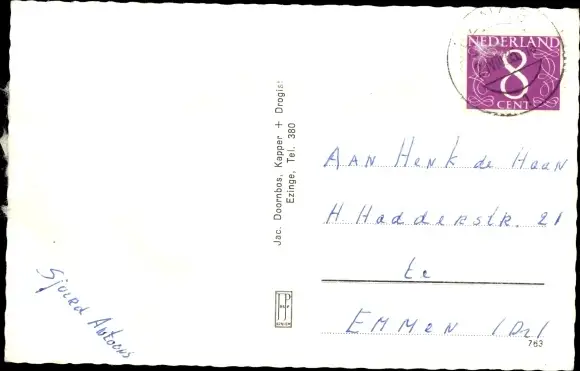 NEDERLAND
8
CENT
Jac. Doornbos, Kapper + Drogist
Ezinge, Tel. 380
AAN Henk de Haan
H Hadderstr. 21
te
EMMEN (Dr)
763
Sjoerd Antoons